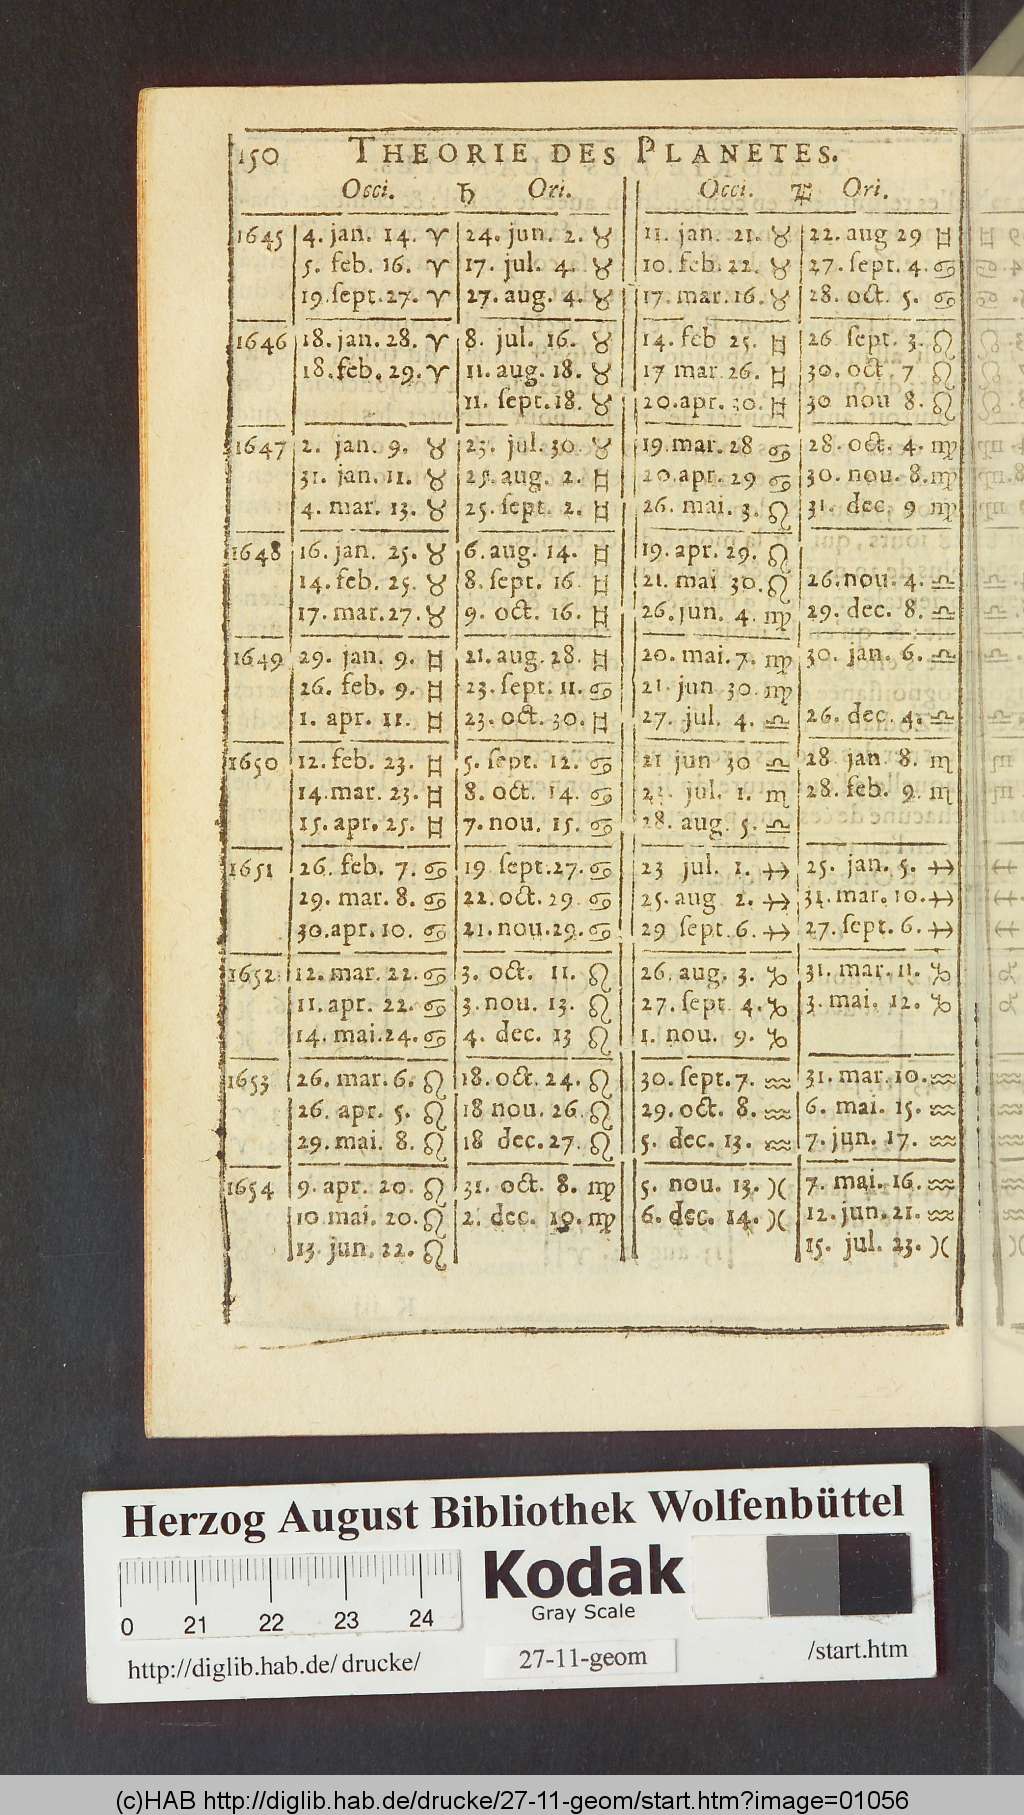 150 THEORIE DES PLANETES.
Occi. ♄ Ori. Occi. ♃ Ori.
1645 4. jan. 14. ♈ 24. jun. 2. ♉ 11. jan. 21. ♉ 22. aug 29 ♊
5. feb. 16. ♈ 17. jul. 4. ♉ 10. feb. 22. ♉ 27. sept. 4. ♋
19. sept. 27. ♈ 27. aug. 4. ♉ 17. mar. 16. ♉ 28. oct. 5. ♋
1646 18. jan. 28. ♈ 8. jul. 16. ♉ 14. feb 25. ♊ 26 sept. 3. ♌
18. feb. 29. ♈ 11. aug. 18. ♉ 17 mar 26. ♊ 30. oct. 7 ♌
11. sept. 18. ♉ 20. apr. 30. ♊ 30 nou 8. ♌
1647 2. jan. 9. ♉ 23. jul. 30. ♉ 19. mar. 28 ♋ 28. oct. 4. ♍
31. jan. 11. ♉ 25. aug. 2. ♊ 20. apr. 29 ♋ 30. nou. 8. ♍
4. mar. 13. ♉ 25. sept. 2. ♊ 26. mai. 3. ♌ 31. dec. 9 ♍
1648 16. jan. 25. ♉ 6. aug. 14. ♊ 19. apr. 29. ♌
14. feb. 25. ♉ 8. sept. 16. ♊ 21. mai 30. ♌ 26. nou. 4. ♎
17. mar. 27. ♉ 9. oct. 16. ♊ 26. jun. 4. ♍ 29. dec. 8. ♎
1649 29. jan. 9. ♊ 21. aug. 28. ♊ 20. mai. 7. ♍ 30. jan. 6. ♎
26. feb. 9. ♊ 23. sept. 11. ♋ 21. jun 30. ♍
1. apr. 11. ♊ 23. oct. 30. ♊ 27. jul. 4. ♎ 26. dec. 4. ♎
1650 12. feb. 23. ♊ 5. sept. 12. ♋ 21 jun 30 ♎ 28 jan. 8. ♏
14. mar. 23. ♊ 8. oct. 14. ♋ jul. 1. ♏ 28. feb. 9. ♏
15. apr. 25. ♊ 7. nou. 15. ♋ 28. aug. 5. ♎
1651 26. feb. 7. ♋ 19 sept. 27. ♋ 23 jul. 1. ♐ 25. jan. 5. ♐
29. mar. 8. ♋ 22. oct. 29. ♋ 25. aug 2. ♐ 31. mar. 10. ♐
30. apr. 10. ♋ 21. nou. 29. ♋ 29 sept. 6. ♐ 27. sept. 6. ♐
1652 12. mar. 22. ♋ 3. oct. 11. ♌ 26. aug. 3. ♑ 31. mar. 11. ♑
11. apr. 22. ♋ 3. nou. 13. ♌ 27. sept. 4. ♑ 3. mai. 12. ♑
14. mai. 24. ♋ 4. dec. 13 ♌ 1. nou. 9. ♑
1653 26. mar. 6. ♌ 18. oct. 24. ♌ 30. sept. 7. ♒ 31. mar. 10. ♒
26. apr. 5. ♌ 18 nou. 26. ♌ 29. oct. 8. ♒ 6. mai. 15. ♒
29. mai. 8. ♌ 18 dec. 27. ♌ 5. dec. 13. ♒ 7. jun. 17. ♒
1654 9. apr. 20. ♌ 31. oct. 8. ♍ 5. nou. 13. ♓ 7. mai. 16. ♒
10. mai. 20. ♌ 2. dec. 10. ♍ 6. dec. 14. ♓ 12. jun. 21. ♒
13. jun. 22. ♌ 15. jul. 23. ♓
Herzog August Bibliothek Wolfenbüttel
Kodak
Gray Scale
0 21 22 23 24
http://diglib.hab.de/ drucke/ 27-11-geom /start.htm
(c)HAB http://diglib.hab.de/drucke/27-11-geom/start.htm?image=01056